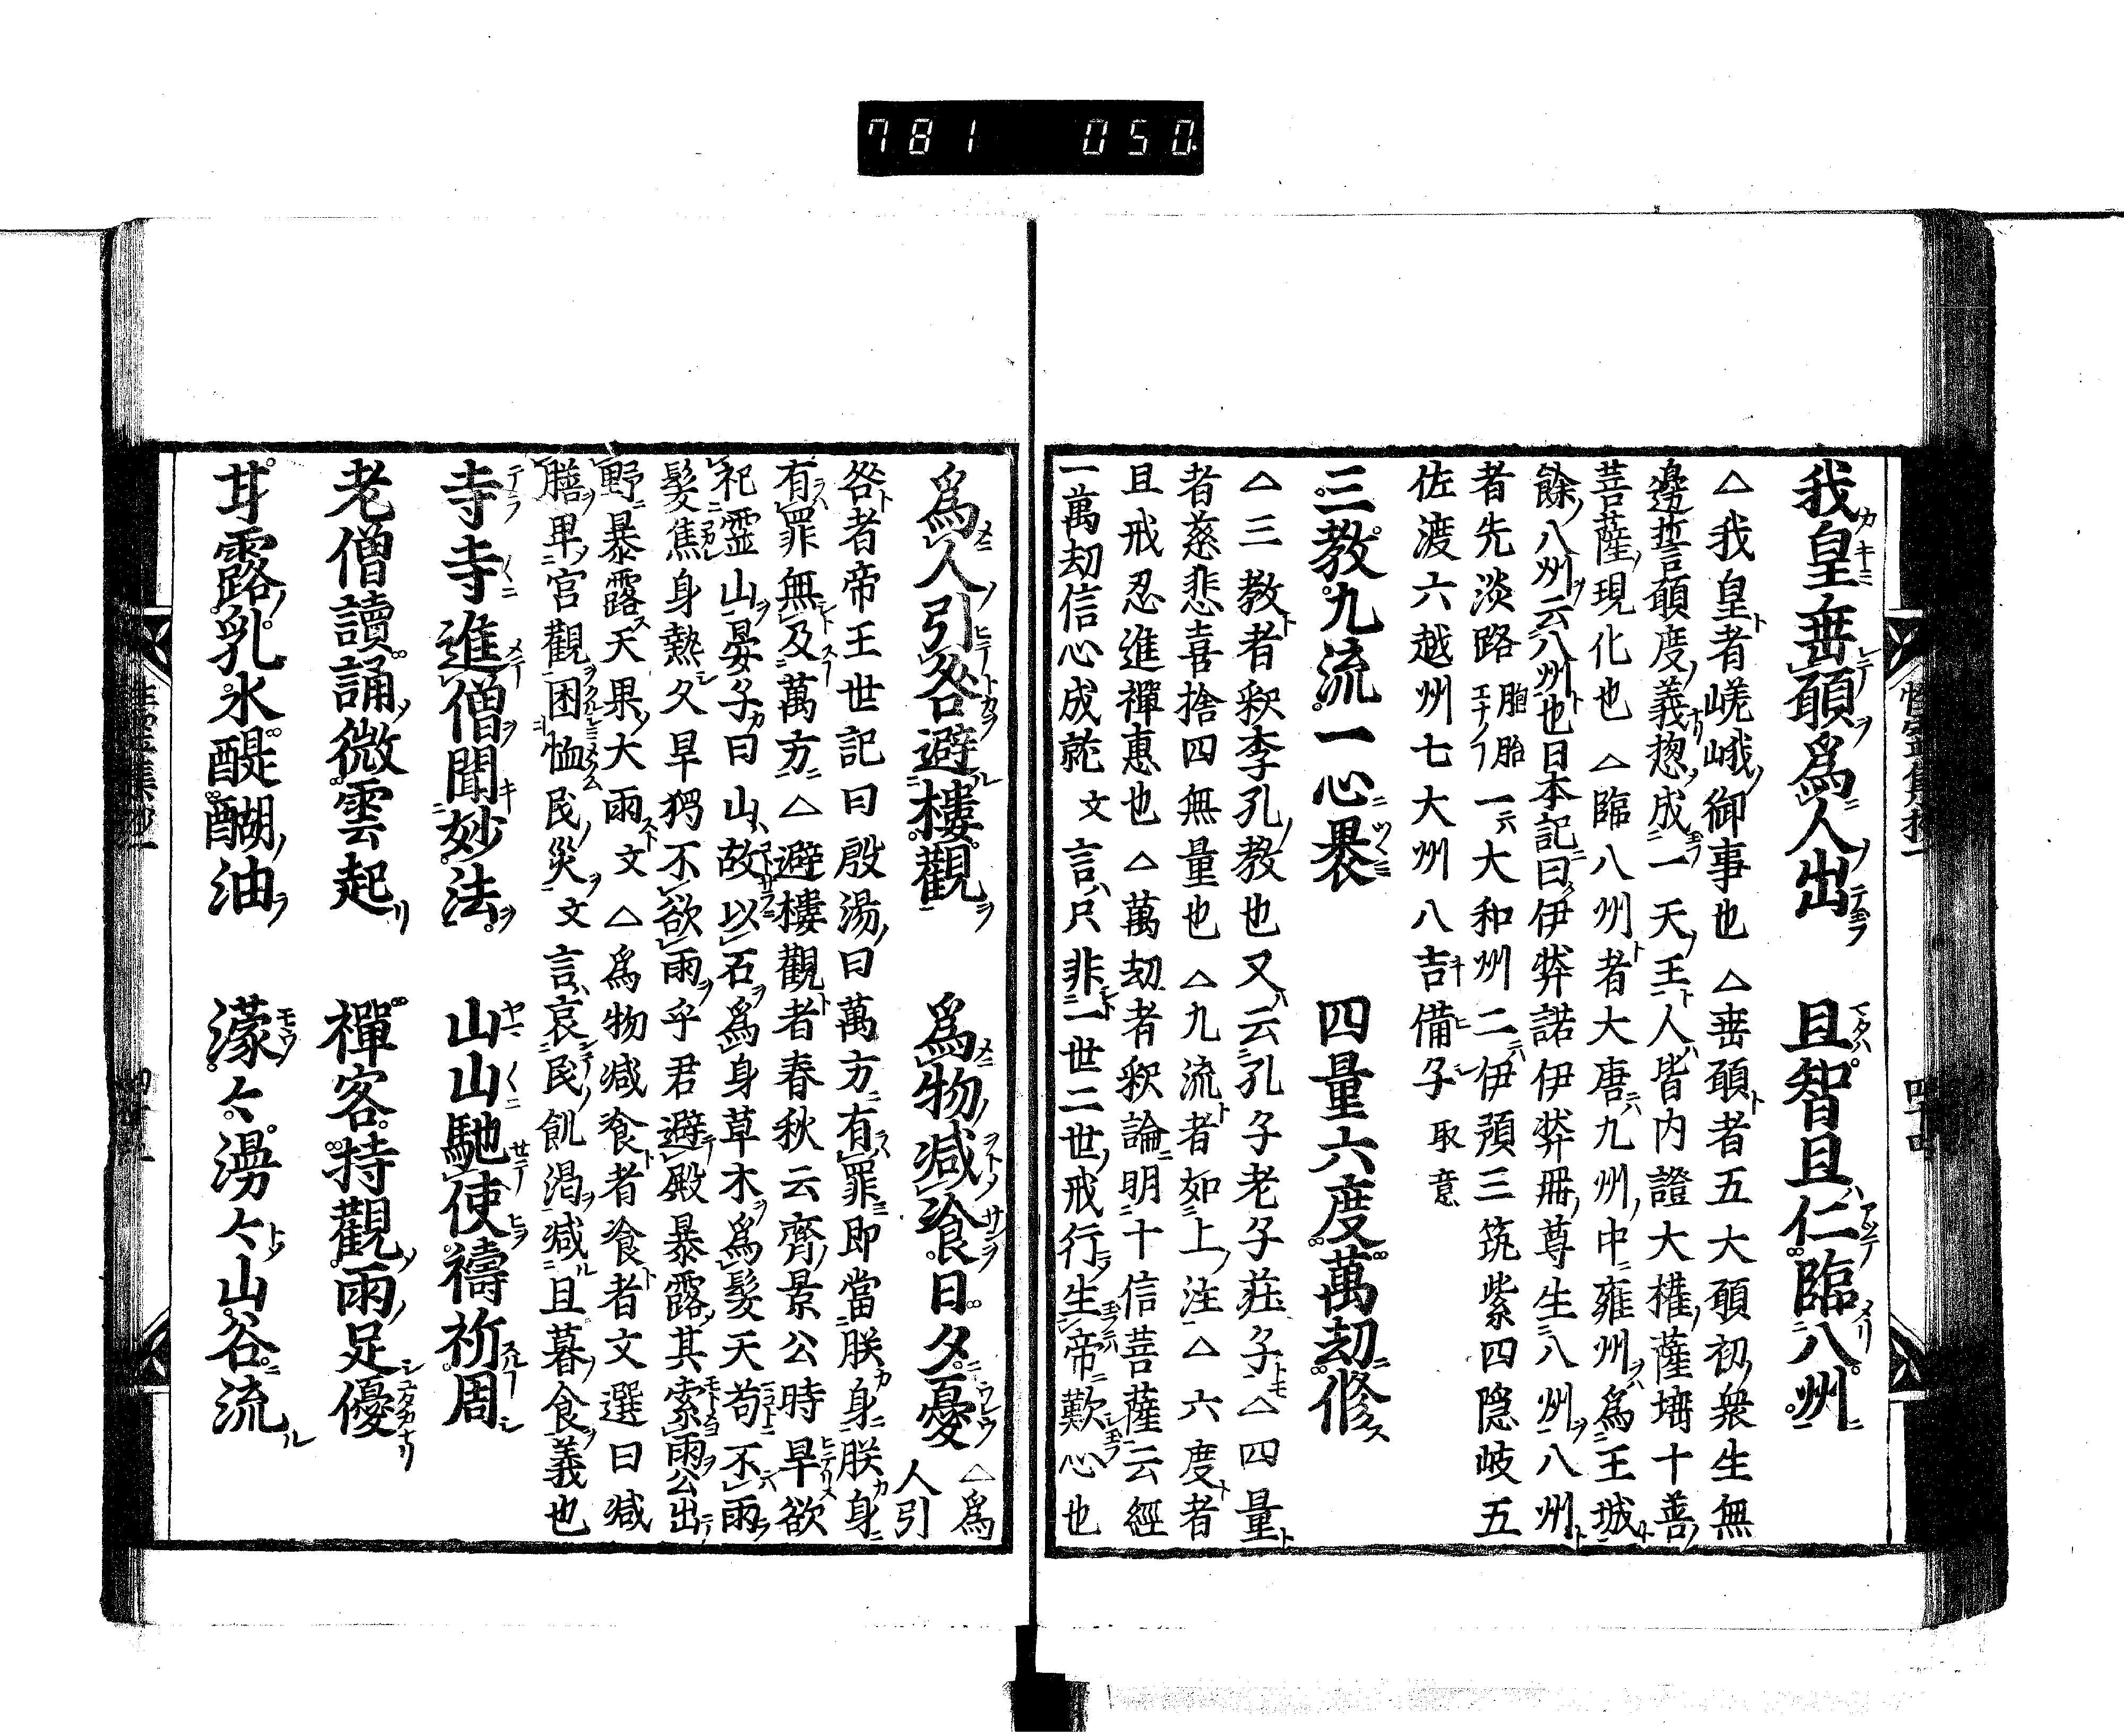 781 050
我皇垂願爲人出 且智且仁臨八州
△我皇者嵯峨御事也△垂願者五大願初衆生無
邊誓願度義惣成一天王人皆内證大権薩埵十善
菩薩現化也△臨八州者大唐九州中雍州爲王城
餘八州云八州也日本記曰伊弉諾伊弉冊尊生八州八州
者先淡路胞胎一大和州二伊預三筑紫四隠岐五
佐渡六越州七大州八吉備子取意
三教九流一心褁 四量六度萬劫修
△三教者釈李孔教也又云孔子老子荘子△四量
者慈悲喜捨四無量也△九流者如上注△六度者
且戒忍進禅惠也△萬劫者釈論明十信菩薩云經
一萬劫信心成就文言只非一世二世戒行生帝歎心也
爲人引咎避樓觀 爲物減飡日夕憂 △爲人引
咎者帝王世記曰殷湯曰萬方有罪即當朕身朕身
有罪無及萬方△避樓觀者春秋云齊景公時旱欲
祀霊山晏子曰山故以石爲身草木爲髪天苟不雨
髪焦身熱久旱猶不欲雨乎君避殿暴露其索雨公出
野暴露天果大雨文△爲物減飡者飡者文選曰減
膳卑宮觀困恤民災文言哀民飢渇減且暮食義也
寺寺進僧開妙法 山山馳使禱祈周
老僧讀誦微雲起 禪客持觀雨足優
甘露乳水醍醐油 濛々滂々山谷流